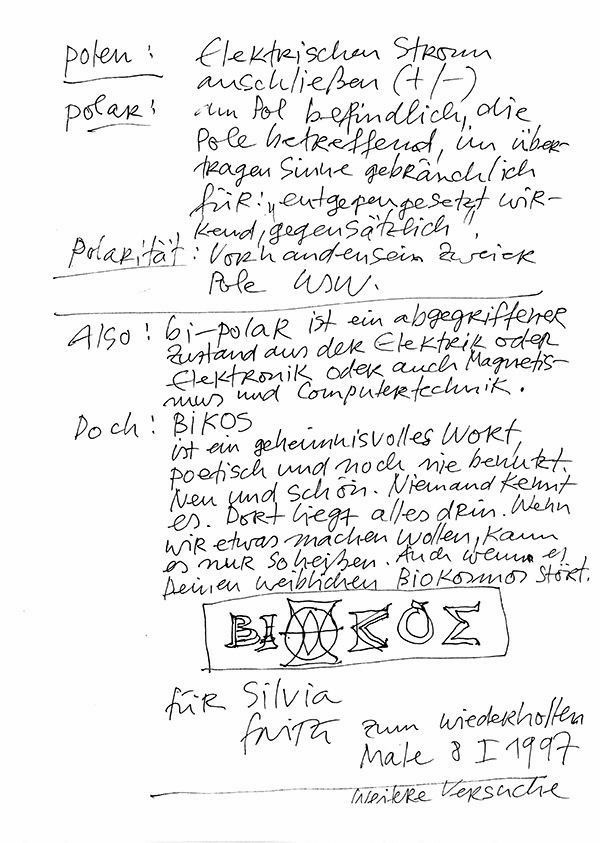 polen: Elektrischen Strom
anschließen (+/-)
polar: am Pol befindlich, die
Pole betreffend, im über-
tragen Sinne gebräuchlich
für: "entgegengesetzt wir-
kend, gegensätzlich"
Polarität: Vorhandensein zweier
Pole USW.
Also: bi-polar ist ein abgegriffener
Zustand aus der Elektrik oder
Elektronik oder auch Magnetis-
mus und Computertechnik.
Doch: BIKOS
ist ein geheimnisvolles Wort,
poetisch und noch nie benutzt.
Neu und schön. Niemand kennt
es. Dort liegt alles drin. Wenn
wir etwas machen wollen, kann
es nur so heißen. Auch wenn es
Deinen weiblichen BIOKOSMOS stört.
BIKOS
für Silvia
fritz zum wiederholten
Male 8 I 1997
weitere Versuche